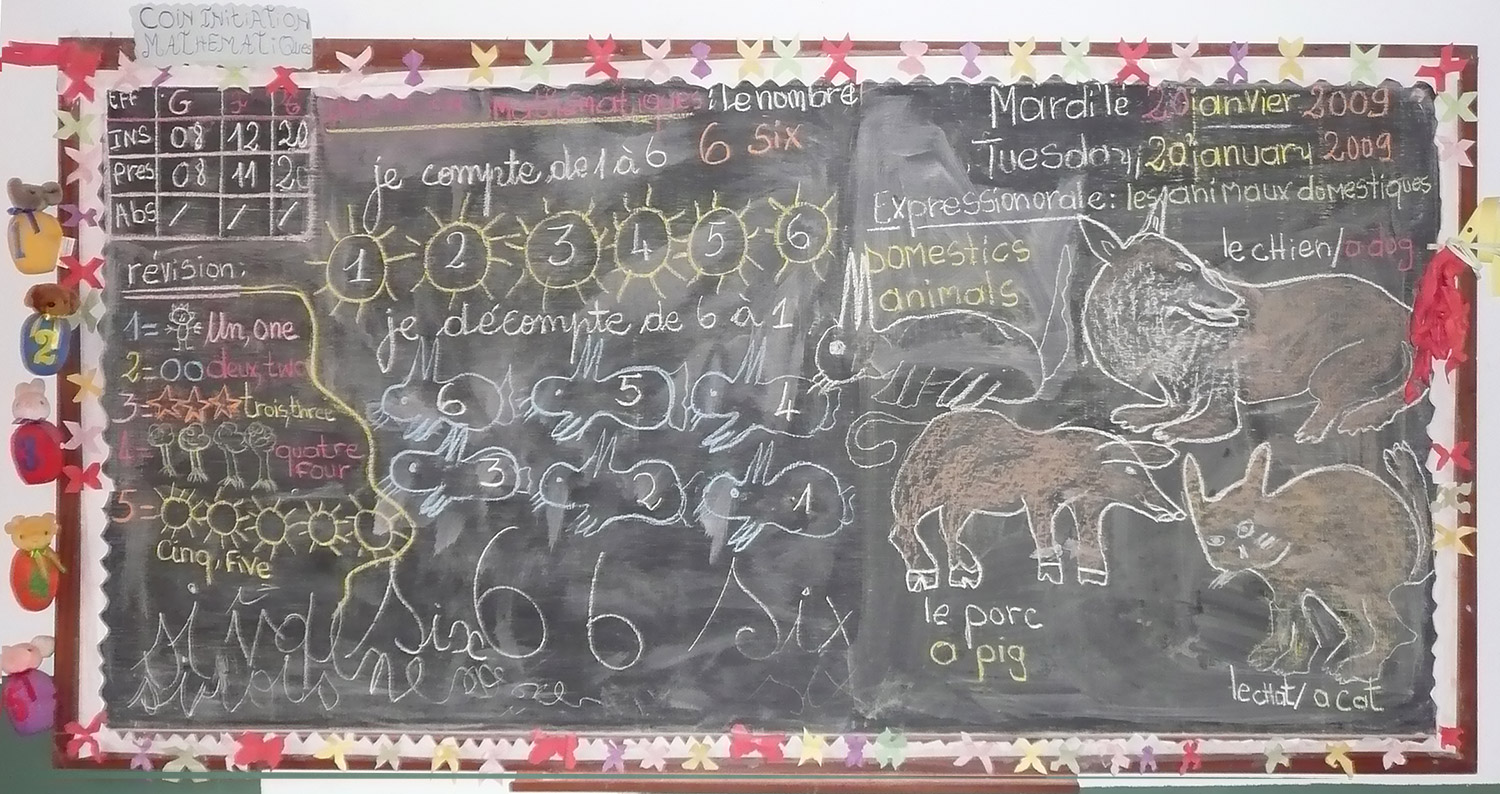 COIN INITIATION
MATHEMATIQues
EFF G F T
INS 08 12 20
Pres 08 11
Abs / / /
révision:
1= Un, one
2= deux, two
3= trois, three
4= quatre
four
5=
Cinq, Five
Mathematiques : le nombre
6 Six
je compte de 1 à 6
1 2 3 4 5 6
je décompte de 6 à 1
6 5 4
3 2 1
Six 6 6 Six
Mardi le 20 janvier 2009
Tuesday, 20 january 2009
Expression orale: les animaux domestiques
Domestics
animals
le cHien/a dog
le porc
a pig
le cHat/ a cat
1
2
3
5